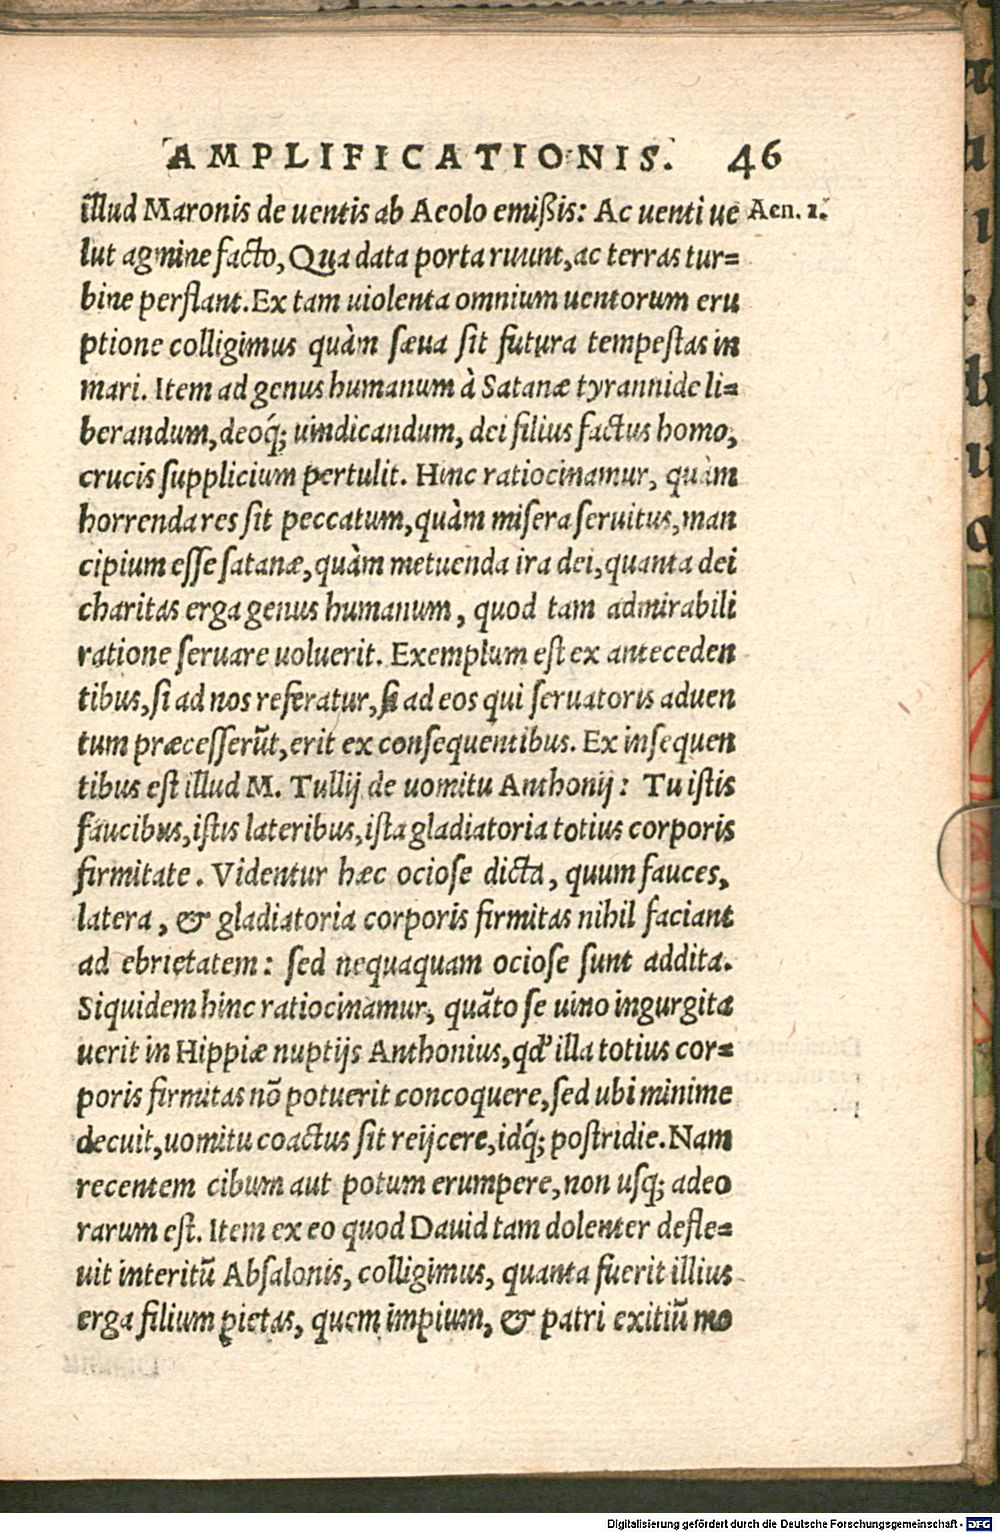 AMPLIFICATIONIS. 46
illud Maronis de uentis ab Aeolo emißis: Ac uenti ue Aen. 1.
lut agmine facto, Qua data porta ruunt, ac terras tur=
bine perflant. Ex tam uiolenta omnium uentorum eru
ptione colligimus quàm sæua sit futura tempestas in
mari. Item ad genus humanum à Satanæ tyrannide li=
berandum, deoq́; uindicandum, dei filius factus homo,
crucis supplicium pertulit. Hinc ratiocinamur, quàm
horrenda res sit peccatum, quàm misera seruitus, man
cipium esse satanæ, quàm metuenda ira dei, quanta dei
charitas erga genus humanum, quod tam admirabili
ratione seruare uoluerit. Exemplum est ex anteceden
tibus, si ad nos referatur, si ad eos qui seruatoris aduen
tum præcesserũt, erit ex consequentibus. Ex insequen
tibus est illud M. Tullij de uomitu Anthonij: Tu istis
faucibus, istis lateribus, ista gladiatoria totius corporis
firmitate. Videntur hæc ociose dicta, quum fauces,
latera, & gladiatoria corporis firmitas nihil faciant
ad ebrietatem: sed nequaquam ociose sunt addita.
Siquidem hinc ratiocinamur, quãto se uino ingurgita
uerit in Hippiæ nuptijs Anthonius, qđ illa totius cor=
poris firmitas nõ potuerit concoquere, sed ubi minime
decuit, uomitu coactus sit reijcere, idq́; postridie. Nam
recentem cibum aut potum erumpere, non usq; adeo
rarum est. Item ex eo quod Dauid tam dolenter defle=
uit interitũ Absalonis, colligimus, quanta fuerit illius
erga filium pietas, quem impium, & patri exitiũ mo
Digitalisierung gefördert durch die Deutsche Forschungsgemeinschaft - DFG